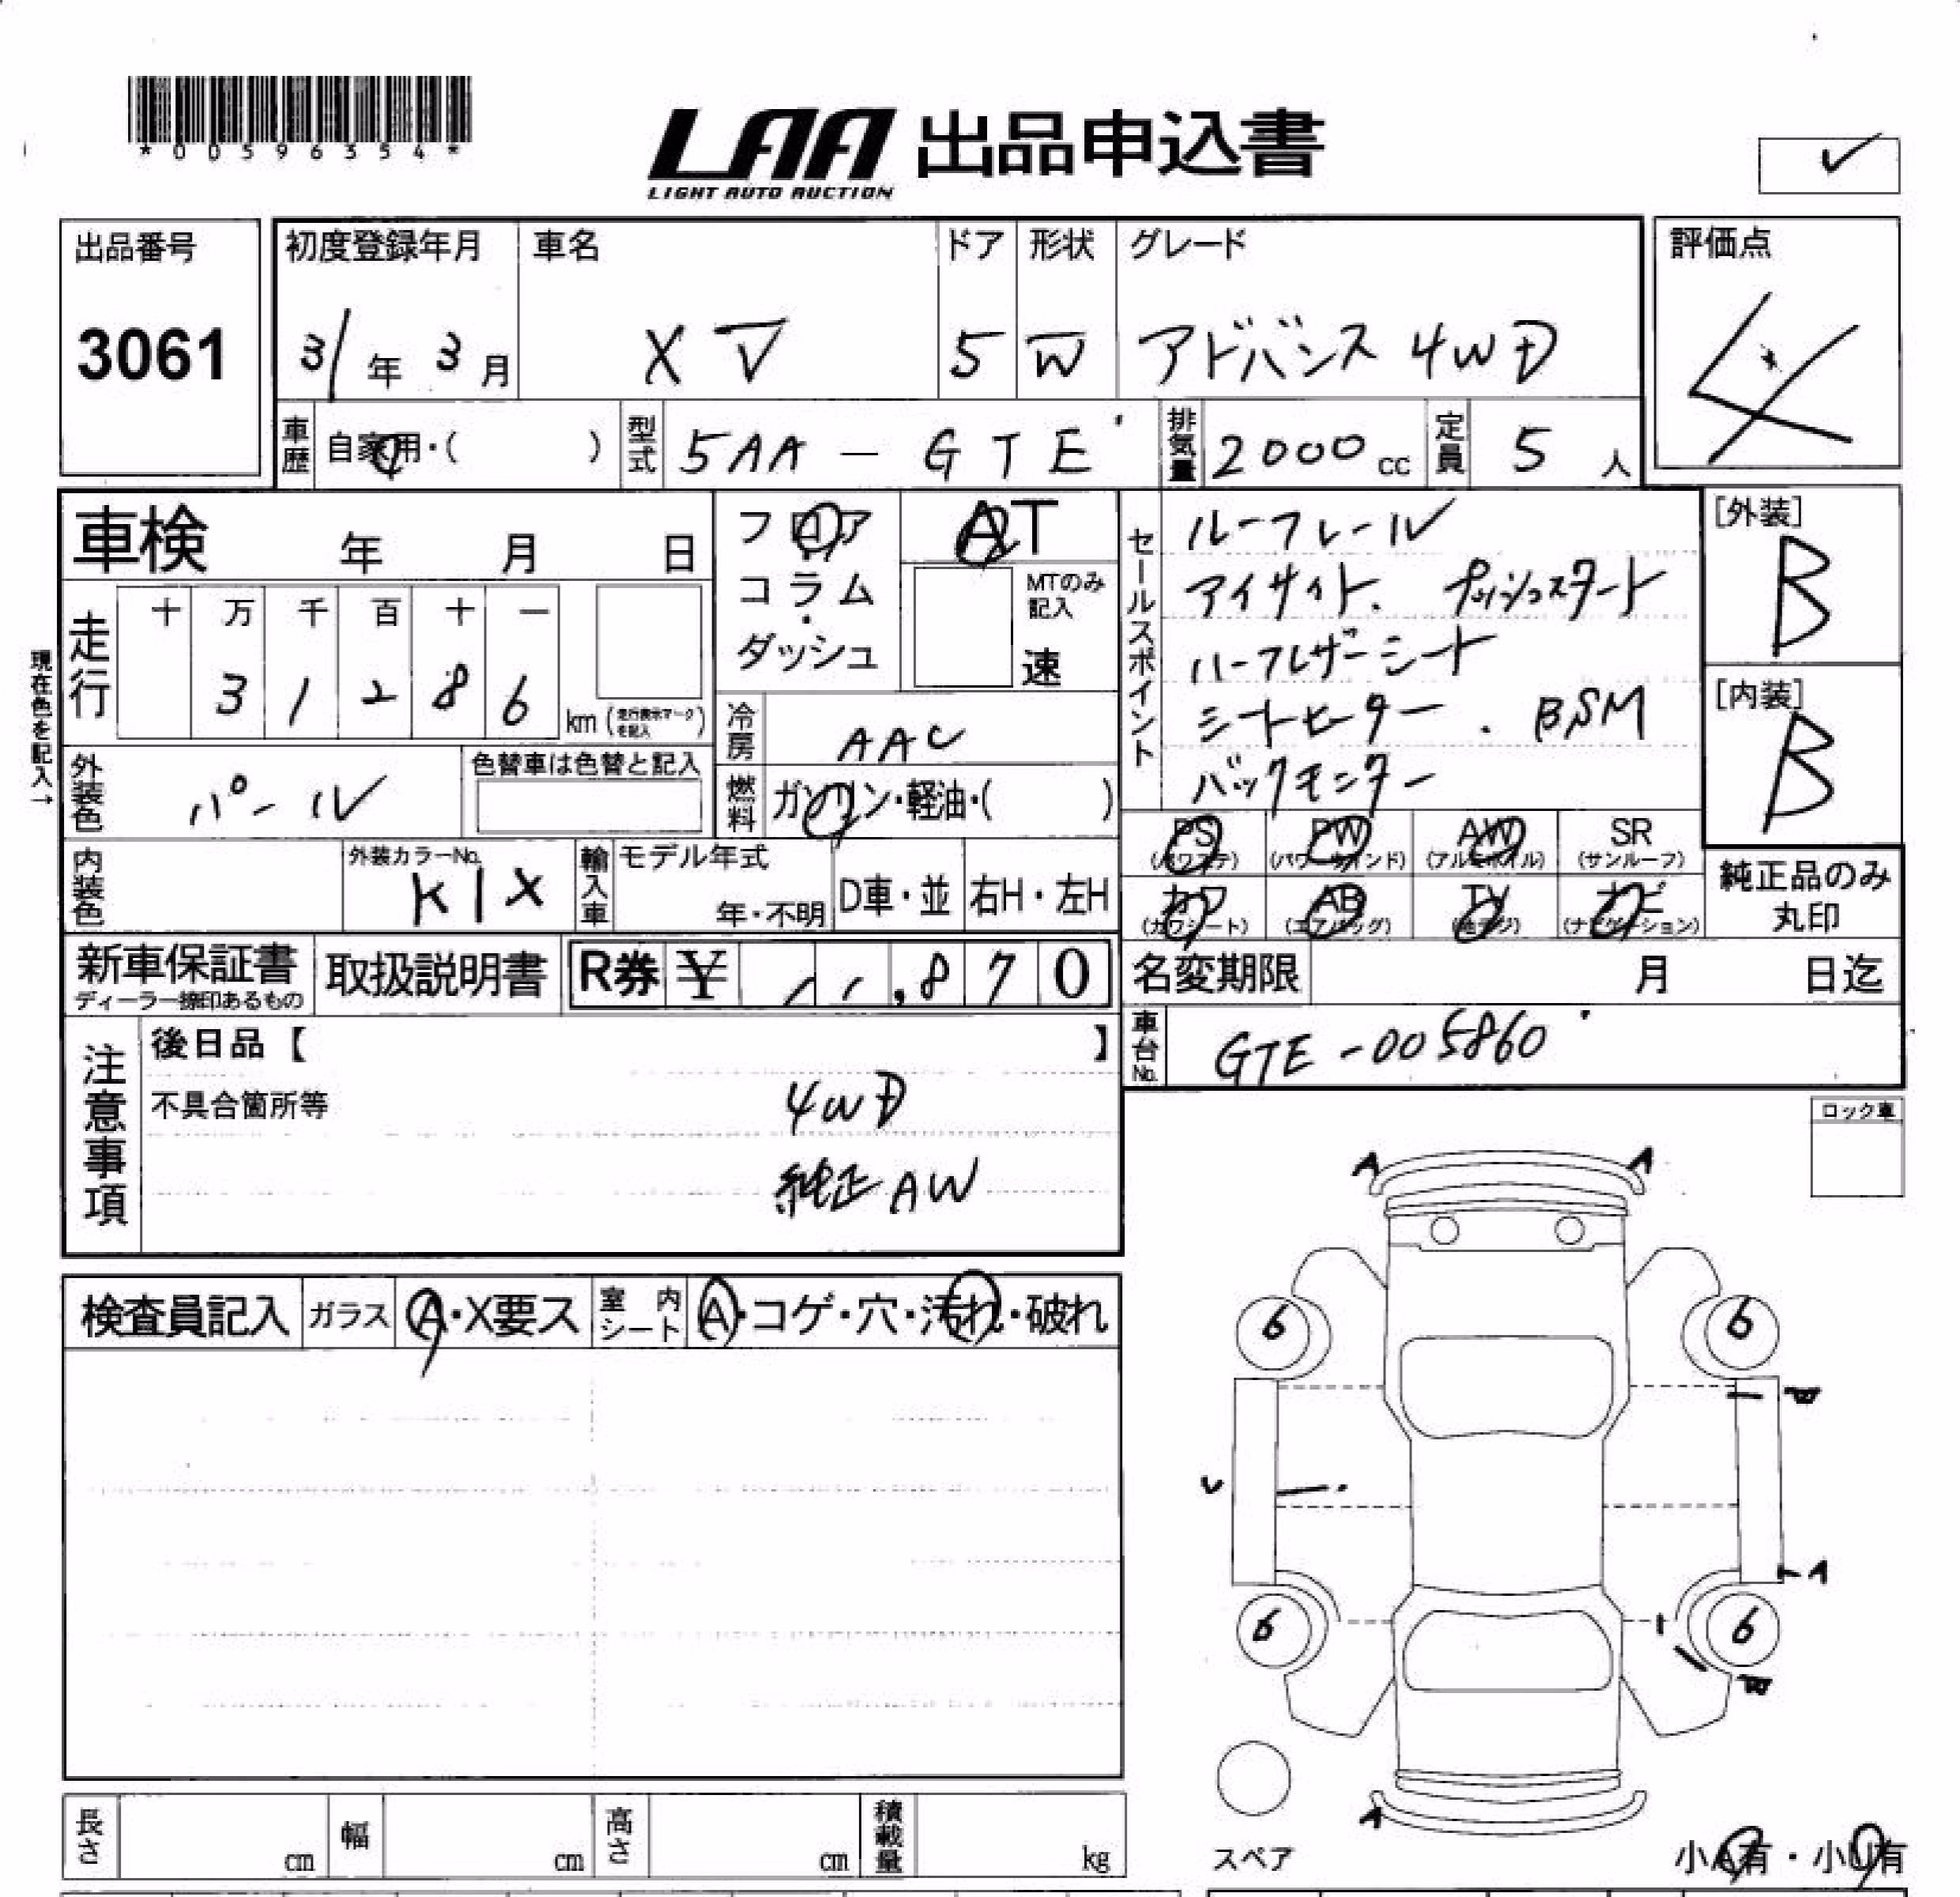 *00596354*
LAA 出品申込書
LIGHT AUTO AUCTION
出品番号
3061
初度登録年月 車名 ドア 形状 グレード 評価点
31年 3月 XV 5 W アドバンス 4WD 4
車歴 自家用・( ) 型式 5AA - GTE 排気量 2000 cc 定員 5 人
車検 年 月 日
フロア
コラム・
ダッシュ
AT
MTのみ記入
速
セールスポイント
ルーフレール
アイサイト. プッシュスタート
ハーフレザーシート
シートヒーター . BSM
バックモニター
[外装]
B
[内装]
B
現在色を記入→
走行 十 万 千 百 十 一
3 1 2 8 6 km (走行表示マークを記入)
冷房 AAC
外装色 パール 色替車は色替と記入
燃料 ガソリン・軽油・( )
PS (パワステ) PW (パワーウインド) AW (アルミホイル) SR (サンルーフ)
カワ (カワシート) AB (エアバッグ) TV (地デジ) ナビ (ナビゲーション)
純正品のみ
丸印
内装色 外装カラーNo. K1X 輸入車 モデル年式 年・不明 D車・並 右H・左H
新車保証書 ディーラー捺印あるもの 取扱説明書 R券 ¥ ,870
名変期限 月 日迄
車台No. GTE-005860
注意事項
後日品【 】
不具合箇所等
4WD
純正AW
ロック車
検査員記入 ガラス A・X要ス 室内シート A・コゲ・穴・汚れ・破れ
A A
6 6
W
A
6 6
W
A
長さ cm 幅 cm 高さ cm 積載量 kg
スペア
小A有・小U有